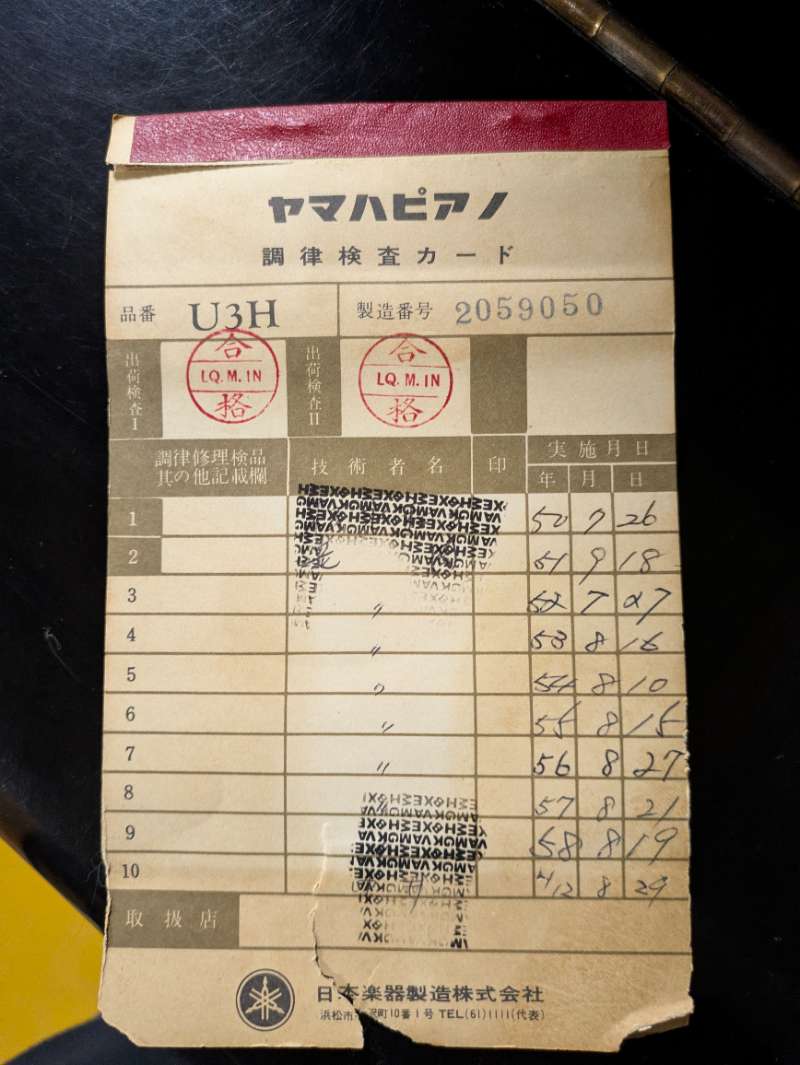 ヤマハピアノ
調律検査カード
品番 U3H 製造番号 2059050
出荷検査I 合格 I.Q.M.IN 出荷検査II 合格 I.Q.M.IN
調律修理検品其の他記載欄 技術者名 印 実施月日
年 月 日
1 50 7 26
2 51 9 18
3 〃 52 7 27
4 〃 53 8 16
5 〃 54 8 10
6 〃 55 8 15
7 〃 56 8 27
8 〃 57 8 21
9 58 8 19
10 H12 8 29
取扱店
日本楽器製造株式会社
浜松市 沢町10番1号 TEL(61)1111(代表)